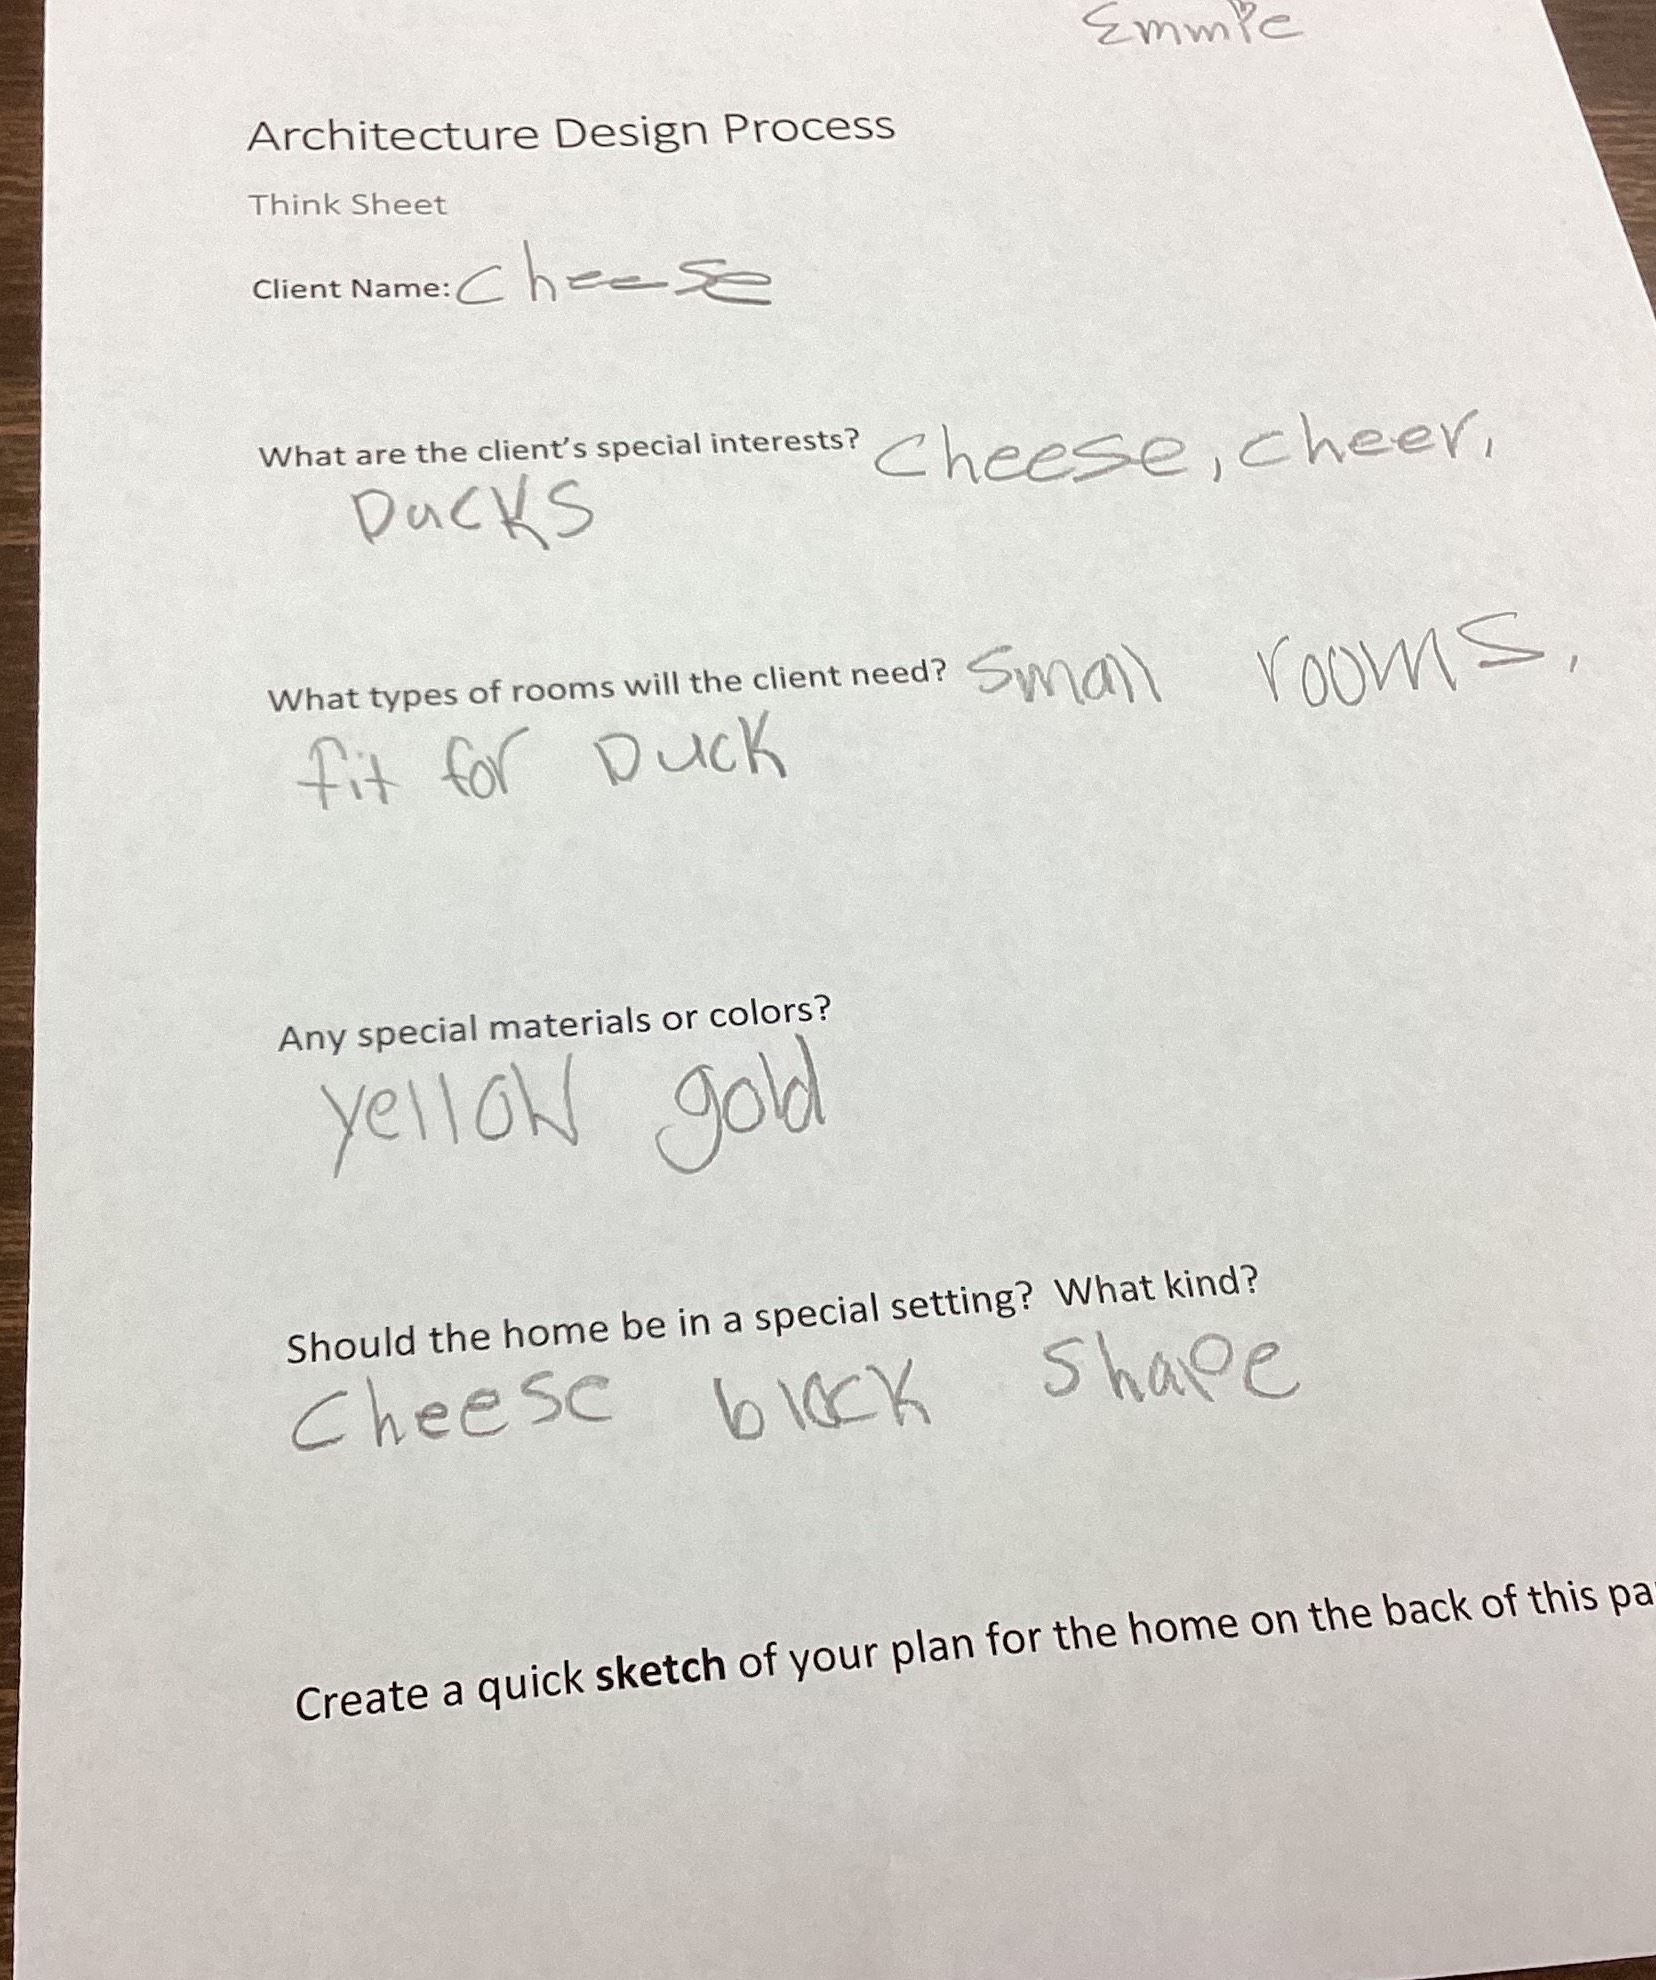 Emmie
Architecture Design Process
Think Sheet
Client Name: Cheese
What are the client's special interests? Cheese, cheer,
Ducks
What types of rooms will the client need? Small rooms,
fit for Duck
Any special materials or colors?
yellow gold
Should the home be in a special setting? What kind?
Cheese block shape
Create a quick sketch of your plan for the home on the back of this pa